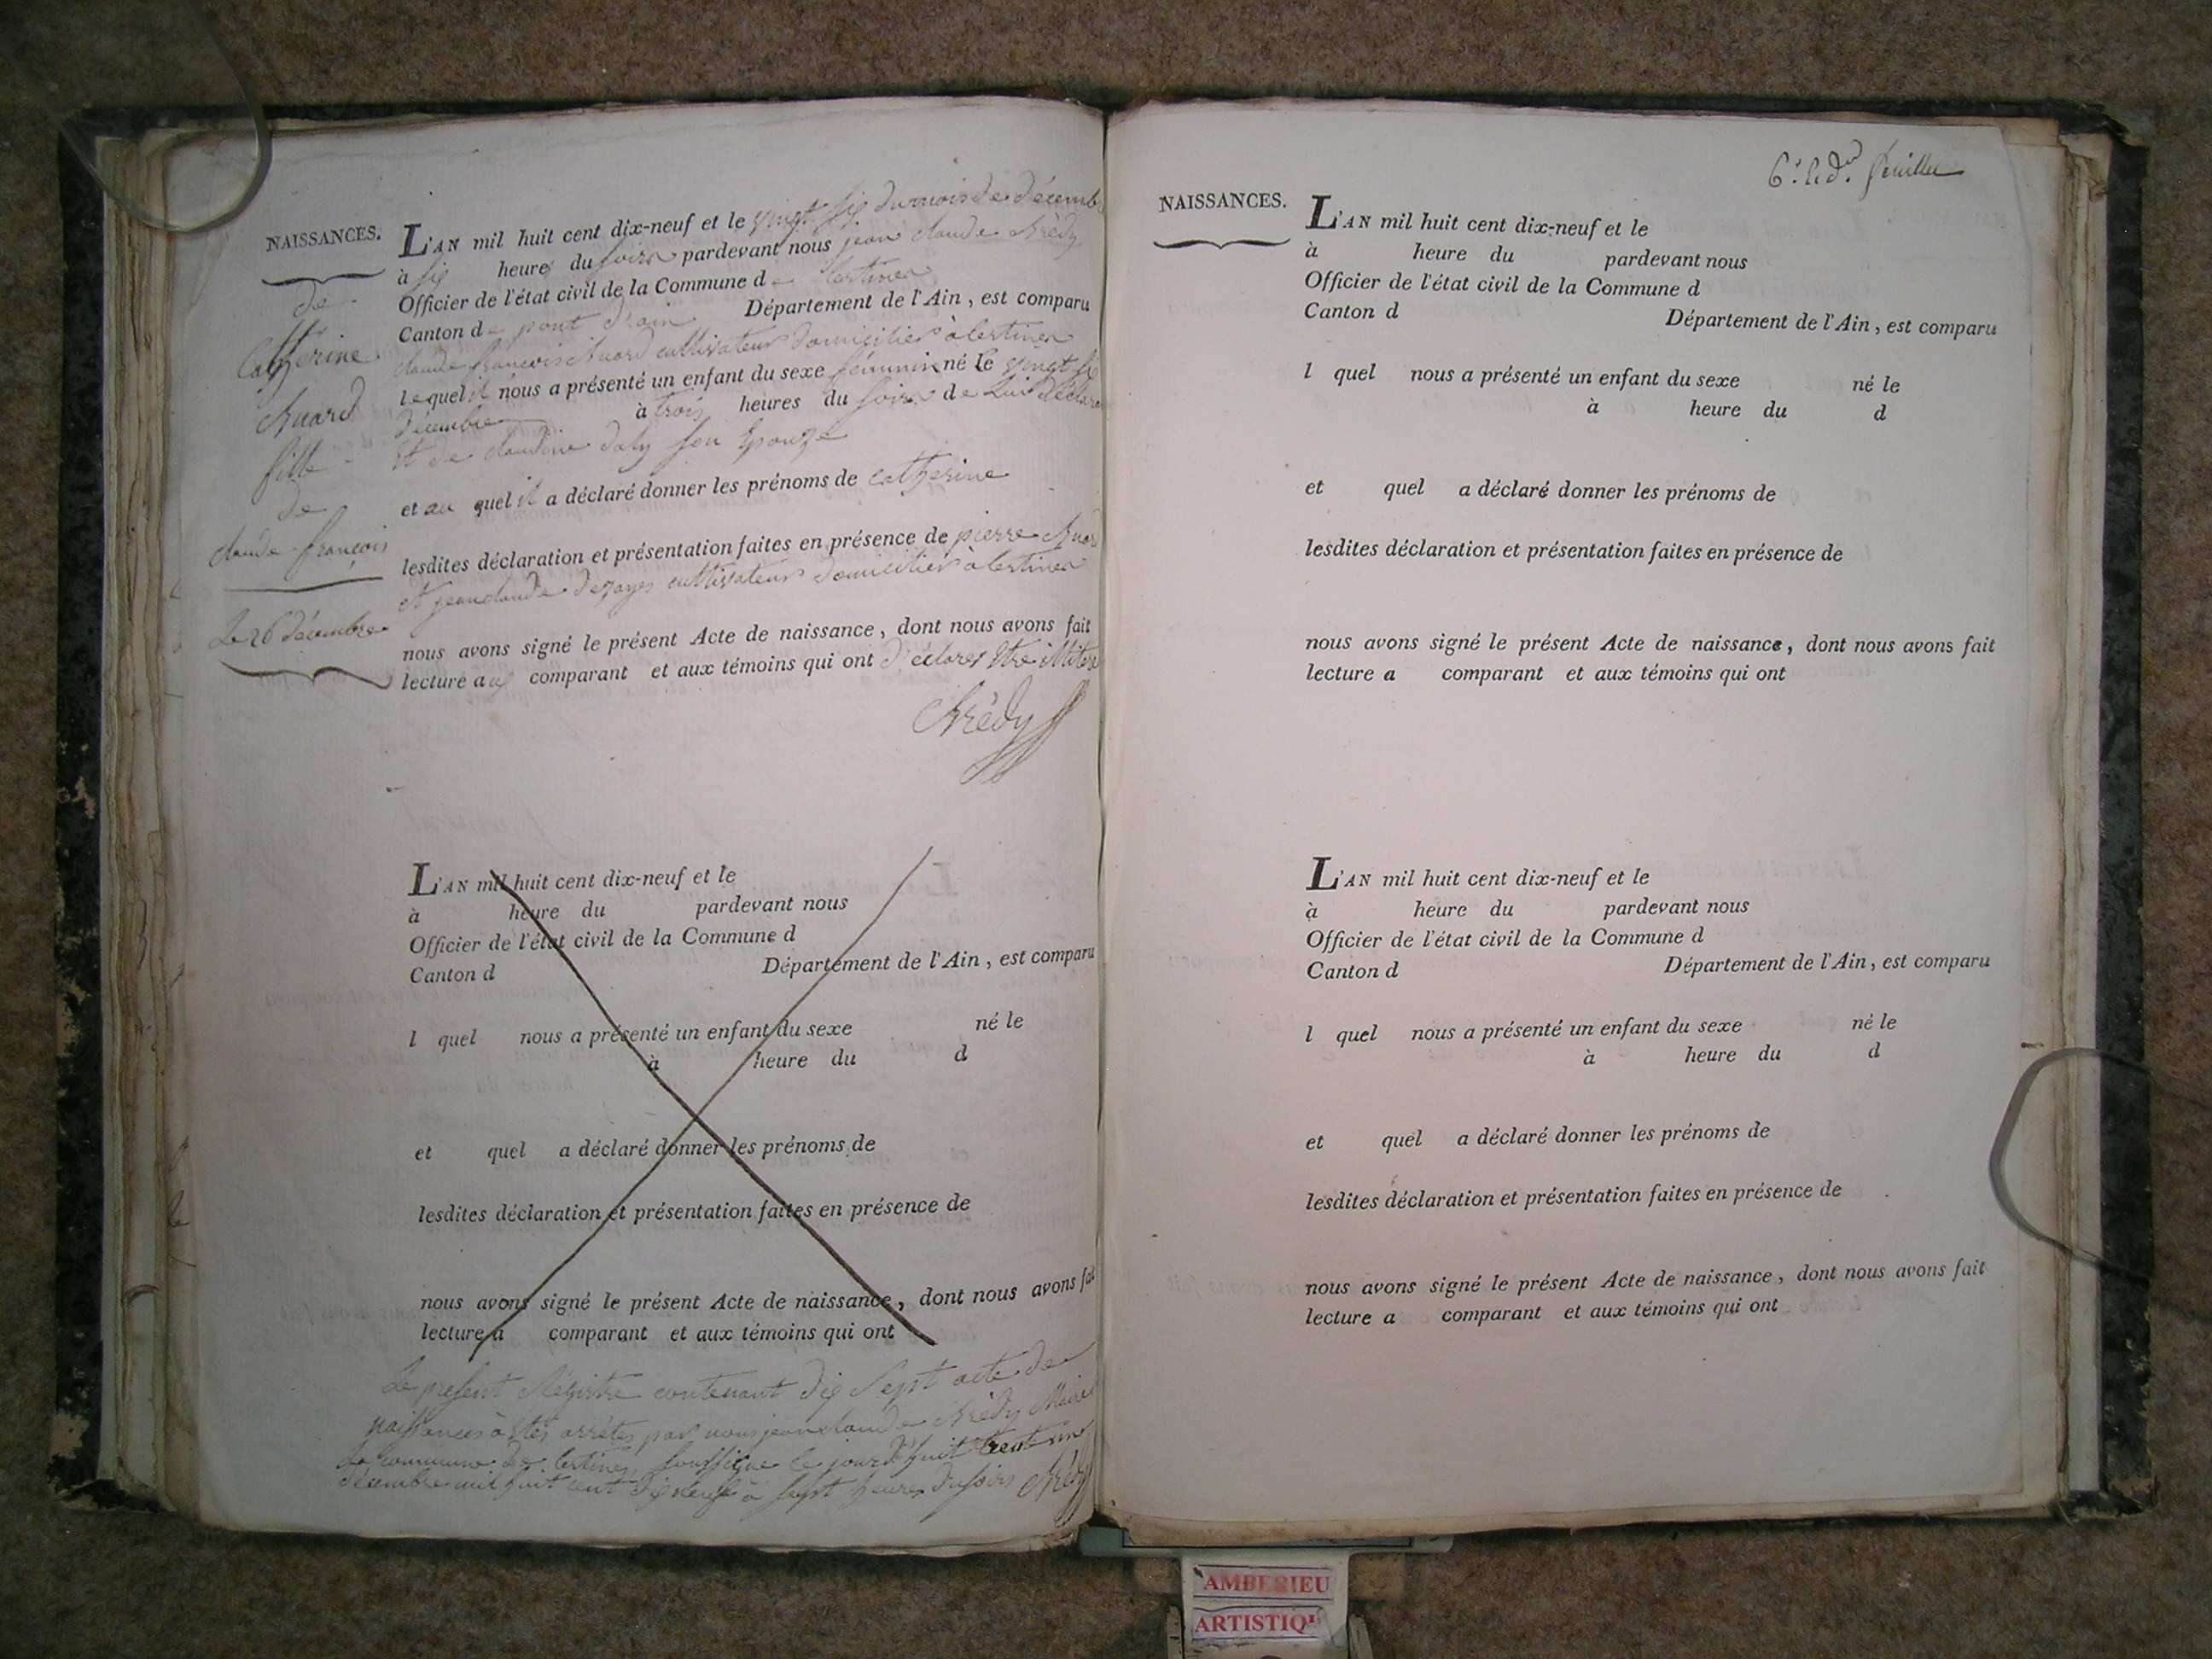 NAISSANCES.
de
Catherine
Ruard
fille
de
claude françois
Le 26 décembre
L'AN mil huit cent dix-neuf et le vingt six du mois de décembre
à six heures du soir pardevant nous jean claude
Officier de l'état civil de la Commune de
Canton de pont d'ain Département de l'Ain, est comparu
claude françois cultivateur domicilier à
lequel il nous a présenté un enfant du sexe féminin né le vingt six
décembre à trois heures du soir de Lui déclarant
et de claudine son épouze
et au quel il a déclaré donner les prénoms de catherine
lesdites déclaration et présentation faites en présence de pierre
et jean claude cultivateur domicilier à
nous avons signé le présent Acte de naissance, dont nous avons fait
lecture aux comparant et aux témoins qui ont déclarer être
L'AN mil huit cent dix-neuf et le
à heure du pardevant nous
Officier de l'état civil de la Commune d
Canton d Département de l'Ain, est comparu
l quel nous a présenté un enfant du sexe né le
à heure du d
et quel a déclaré donner les prénoms de
lesdites déclaration et présentation faites en présence de
nous avons signé le présent Acte de naissance, dont nous avons fait
lecture a comparant et aux témoins qui ont
Le present Régistre contenant dix sept acte de
naissances à étés arrêtés par nous jean claude Maire
La commune de soussigné le jourd'huit trente un
décembre mil huit cent dix neuf à sept heures du soir
feuillet
NAISSANCES.
L'AN mil huit cent dix-neuf et le
à heure du pardevant nous
Officier de l'état civil de la Commune d
Canton d Département de l'Ain, est comparu
l quel nous a présenté un enfant du sexe né le
à heure du d
et quel a déclaré donner les prénoms de
lesdites déclaration et présentation faites en présence de
nous avons signé le présent Acte de naissance, dont nous avons fait
lecture a comparant et aux témoins qui ont
L'AN mil huit cent dix-neuf et le
à heure du pardevant nous
Officier de l'état civil de la Commune d
Canton d Département de l'Ain, est comparu
l quel nous a présenté un enfant du sexe né le
à heure du d
et quel a déclaré donner les prénoms de
lesdites déclaration et présentation faites en présence de
nous avons signé le présent Acte de naissance, dont nous avons fait
lecture a comparant et aux témoins qui ont
AMBERIEU
ARTISTIQU